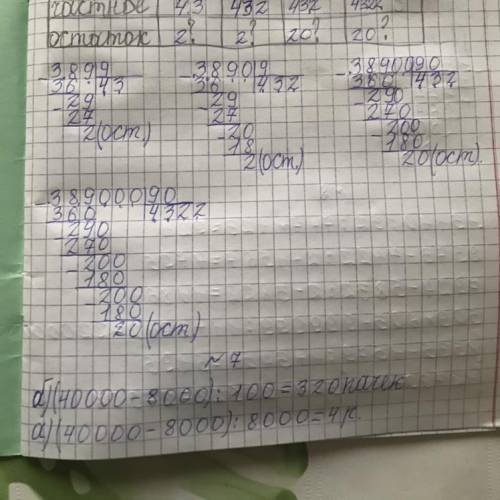 частное 43 432 432 4322
остаток 2? 2? 20? 20?
-3899 -38909 -3890090
36 43 36 432 360 432
-29 -29 -290
27 27 270
2(ост) -20 -200
18 180
2(ост) 20(ост).
-38900090
360 4322
-290
270
-200
180
-200
180
20(ост)
~7
б)(40000-8000):100=320 пачек
а)(40000-8000):8000=4 р.